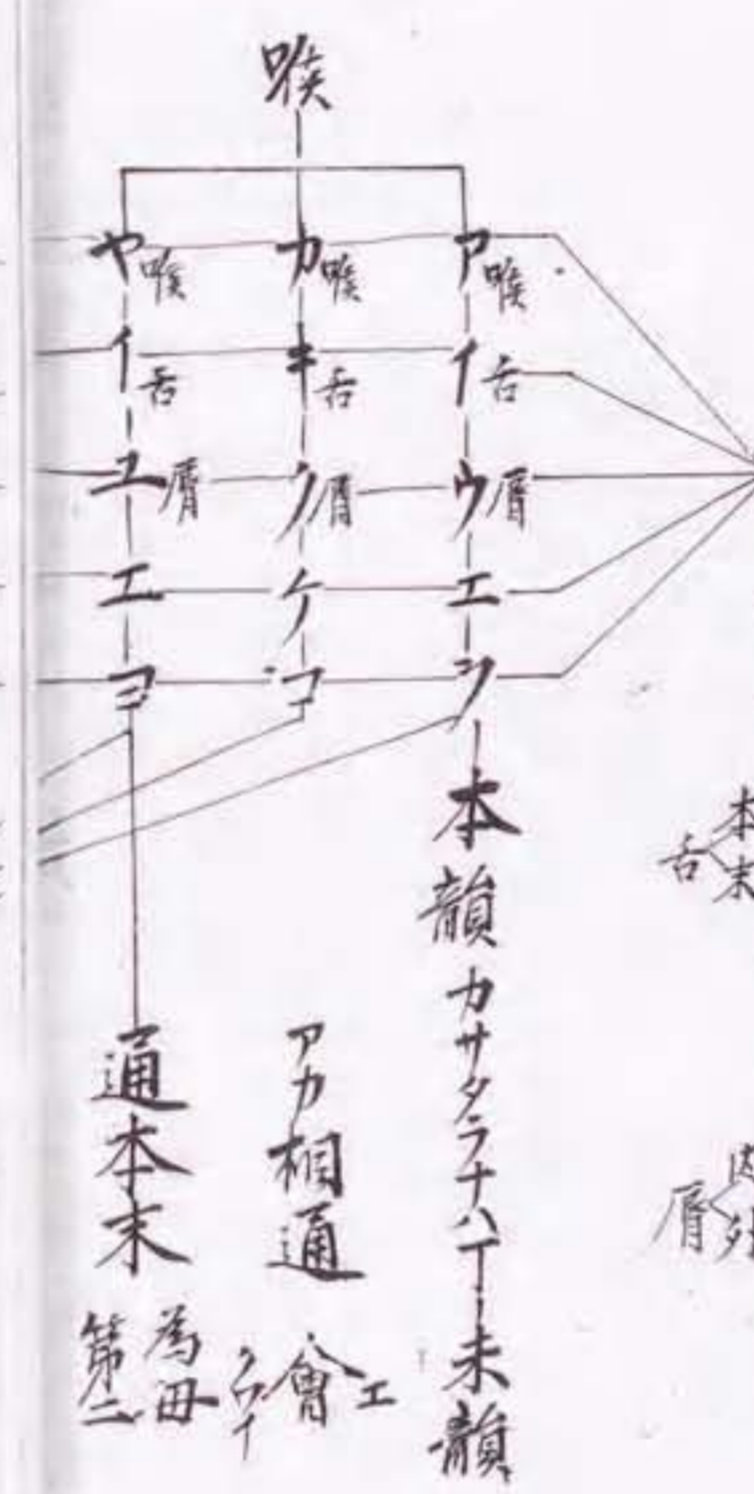 喉
ア喉
イ舌
ウ脣
エ
ヲ
本韻 カサタラナハマ 末韻
カ喉
キ舌
ク脣
ケ
コ
アカ相通 會 エ クワイ
ヤ喉
イ舌
ユ脣
エ
ヨ
通本末
為母
第二
舌 本末
脣